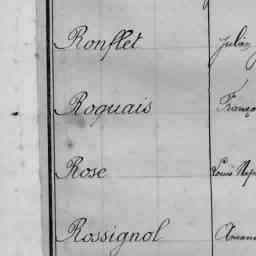 Ronflet Julien
Roquais Franço
Rose Louis Nap
Rossignol Aman